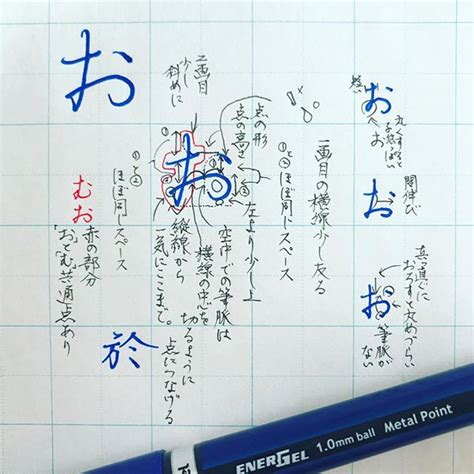 お
お
丸くすると
子供っぽい
お
間伸び
お
真っ直ぐに
おろすと丸めづらい
筆脈が
ない
一画目の横線少し反る
①と②
ほぼ同じスペース
点の形
点の高さ
左より少し上
空中での筆脈は
横線の中心を
切るように
点につなげる
お
縦線から
一気にここまで。
二画目
少し
斜めに
①と②
ほぼ同じスペース
お
むお
赤の部分
「お」と「む」共通点あり
於
ENERGEL 1.0mm ball Metal Point